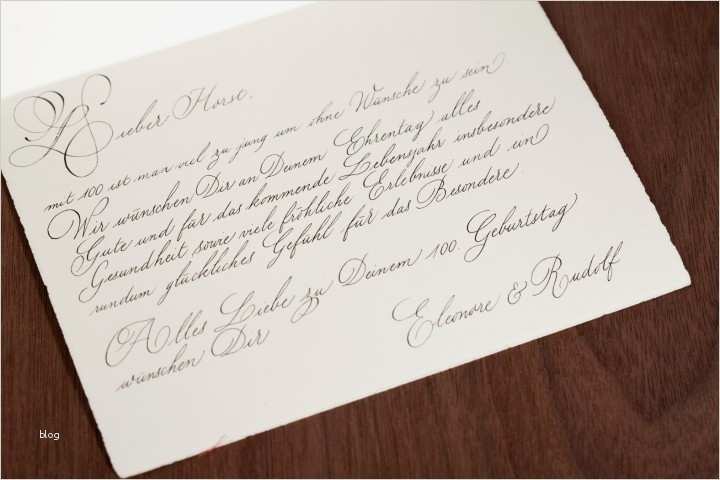 Lieber Horst,
mit 100 ist man viel zu jung um ohne Wünsche zu sein
Wir wünschen Dir an Deinem Ehrentag alles
Gute und für das kommende Lebensjahr insbesondere
Gesundheit sowie viele fröhliche Erlebnisse und ein
rundum glückliches Gefühl für das Besondere.
Alles Liebe zu Deinem 100. Geburtstag
wünschen Dir
Eleonore & Rudolf
blog